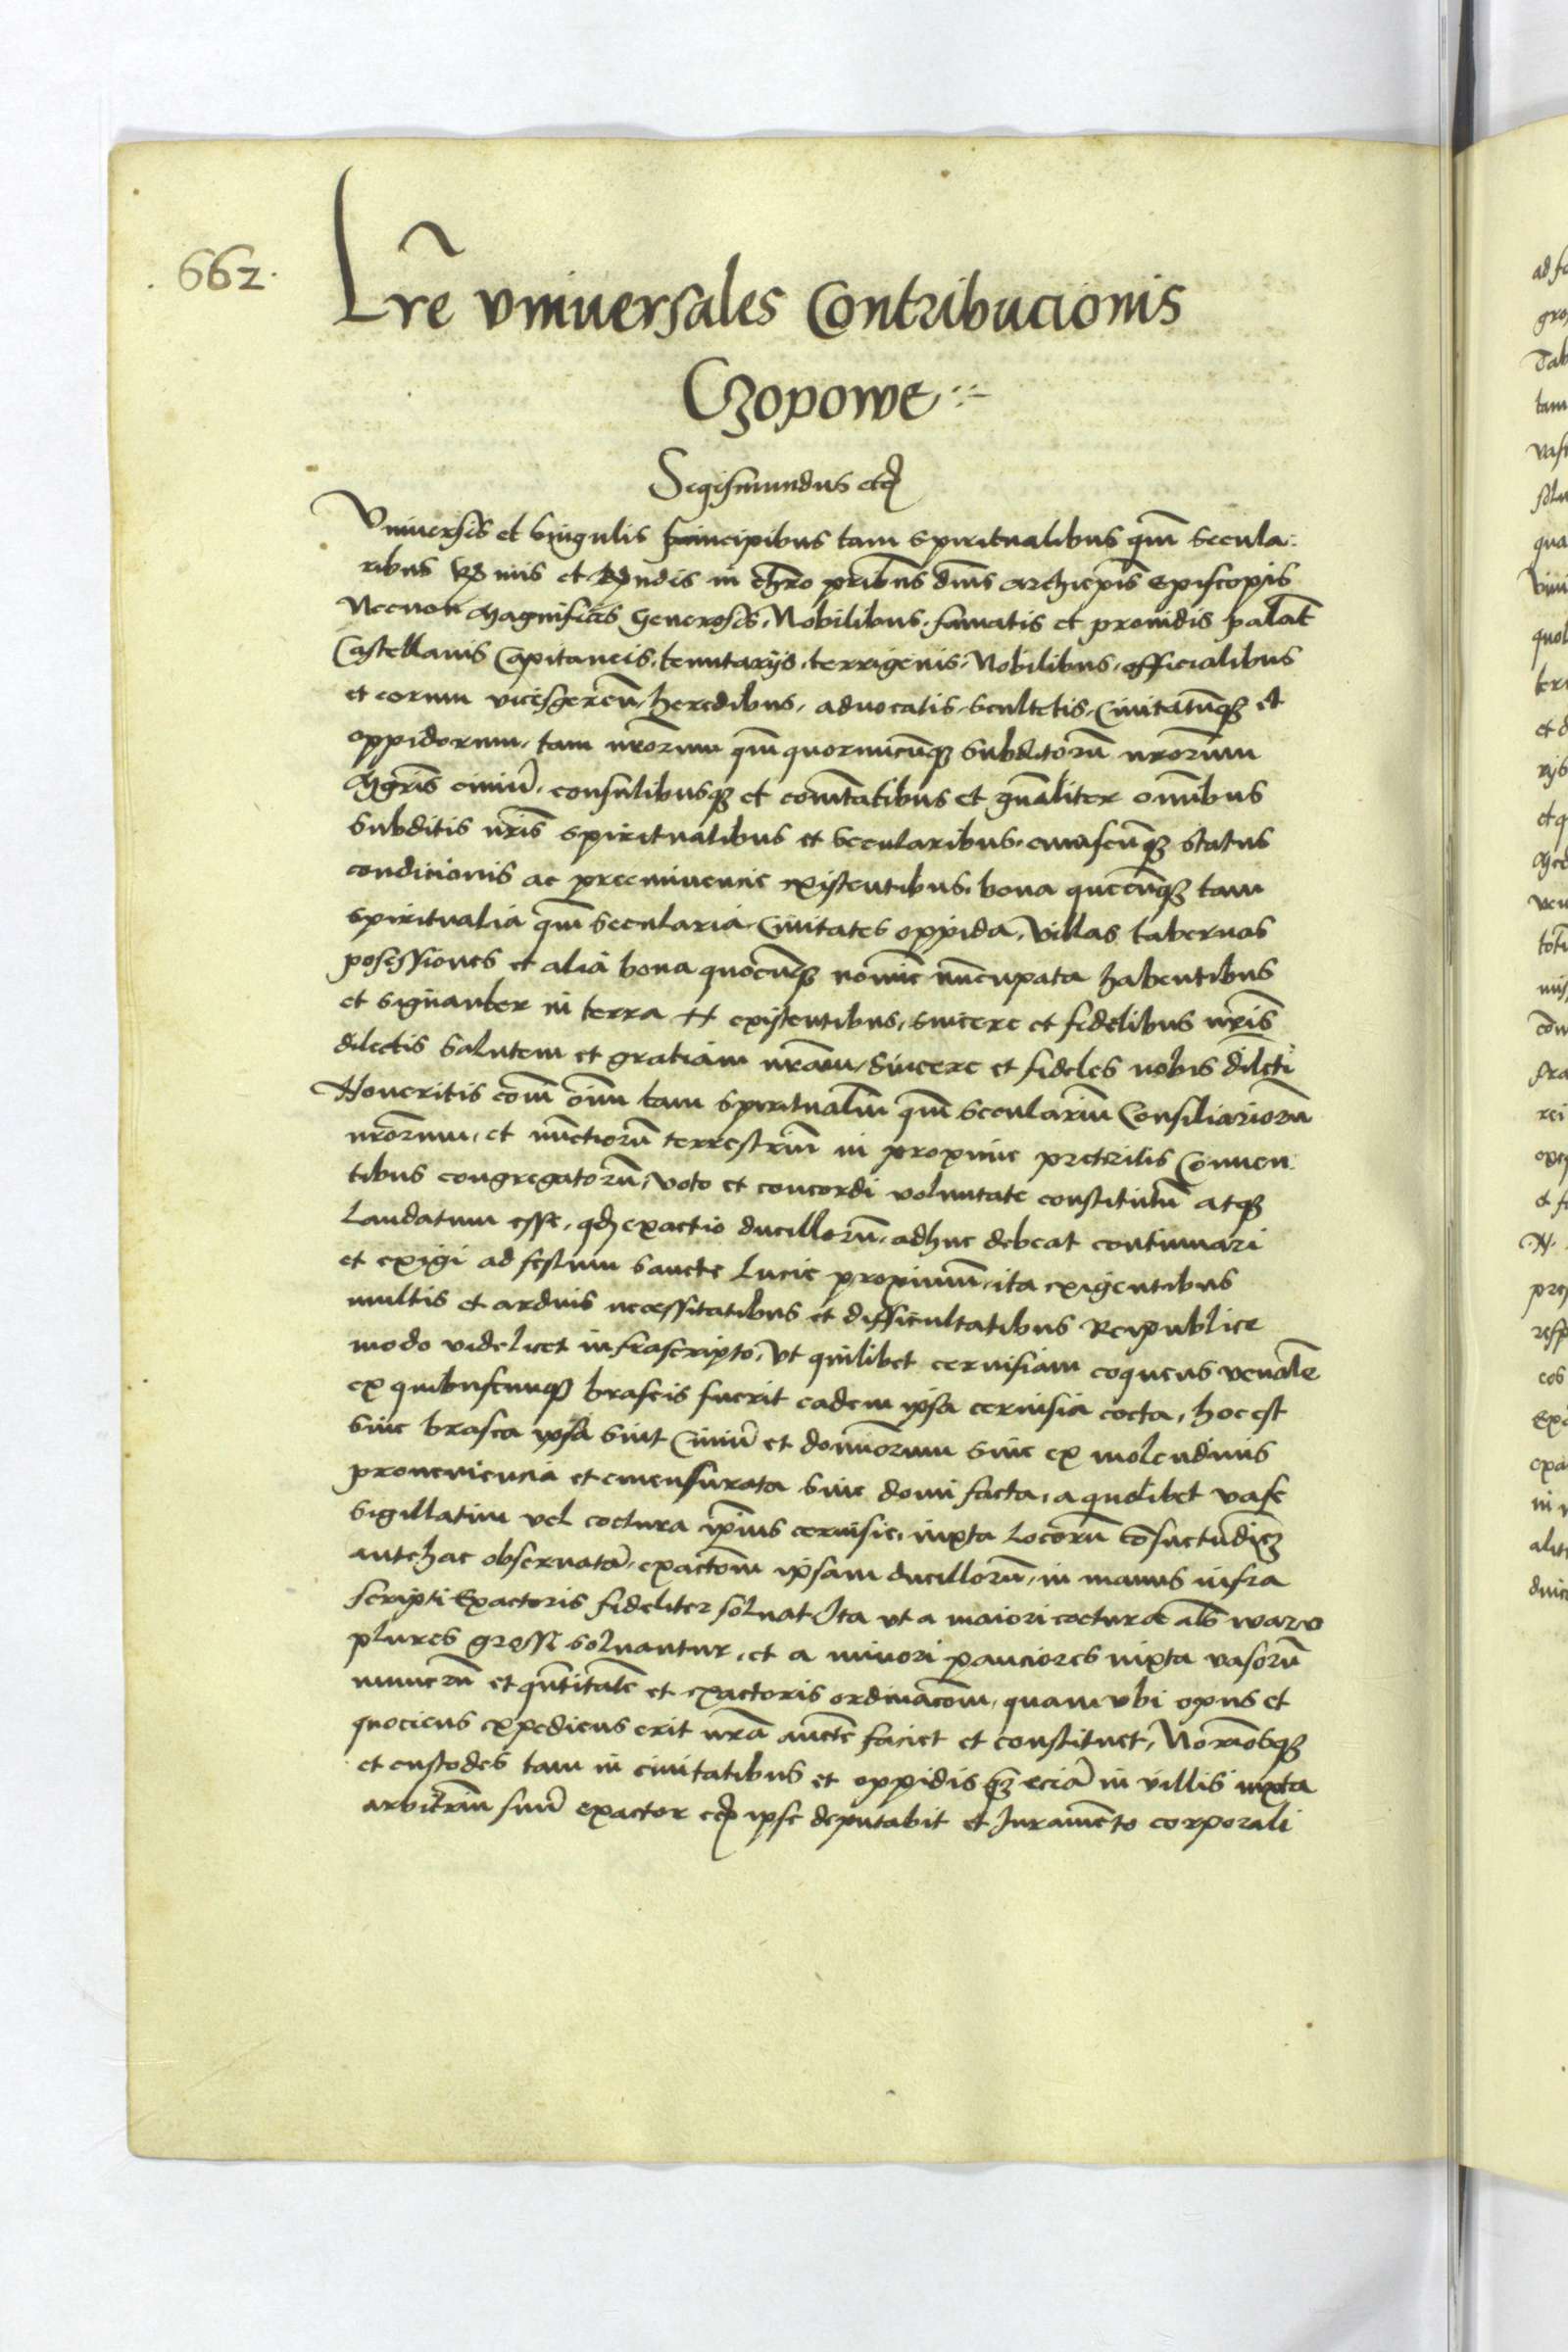 662.
Lr̃e vniuersales Contribucionis
Czopowe
Segismundus etc̃
Vniuersis et singulis principibus tam spiritualibus qm̃ secula:
ribus R̃mis et R̃ndis in chr̃o pr̃ibus dñis archiepĩs Episcopis
Necnon Magnificis Generosis, Nobilibus, famatis et prouidis palat̃
Castellanis Capitaneis, tenutarijs, terrigenis, Nobilibus, officialibus
et eorum vicesgereñ, heredibus, aduocatis, scultetis, Ciuitatũqꝫ et
oppidorum, tam nr̃orum qm̃ quorumcũqꝫ subditorũ nr̃orum
Mgr̃is ciuiũ, consulibusqꝫ et com̃tatibus et gñaliter om̃ibus
Subditis nr̃is spiritualibus et secularibus, cuiuscũqꝫ status
condicionis ac preeminencie existentibus, bona quecũqꝫ tam
spiritualia qm̃ secularia, Ciuitates oppida, Villas tabernas
posessiones et alia bona quocũqꝫ nomĩe nũcupata habentibus
et signanter in terra N existentibus, sincere et fidelibus nr̃is
dilectis salutem et gratiam nr̃am, Sincere et fideles nobis dilcti
Noueritis com̃ oĩm tam spiritualiũ qm̃ seculariũ Consiliariorũ
nr̃orum, et nũctiorũ terrestriũ in proxime preteritis Conuen
tibus congregatorũ, voto et concordi voluntate constitutũ atqꝫ
Laudatum esse, qđ exactio ducillorũ, adhuc debeat continuari
et exigi ad festum sancte Lucie proximũ, ita exigentibus
multis et arduis necessitatibus et difficultatibus Reipublice
modo videlicet infrascripto, Vt quilibet ceruisiam coquens venalẽ
ex quibuscunqꝫ braseis fuerit eadem ipsa ceruisia cocta, hoc est
siue brasea ipsa sint Ciuiũ et domorum siue ex molendinis
proueniencia et emensurata siue domi facta, a quolibet vase
sigillatim vel coctura ip̃ius ceruisie, iuxta locorũ cõsuetudiẽ
antehac obseruatã, exactiom̃ ipsam ducillorũ, in manus infra
scripti Exactoris fideliter soluat Ita vt a maiori coctura al̃s waro
plures grossi soluantur, et a minori pauciores iuxta vasorũ
numerũ et qũtitatẽ et exactoris ordinacom̃, quam vbi opus et
quociens expediens erit nr̃a auctẽ faciet et constituet,
et custodes tam in ciuitatibus et oppidis qꝫ eciã in villis iuxta
arbitriũ suũ exactor ipse deputabit et Iuramẽto corporali